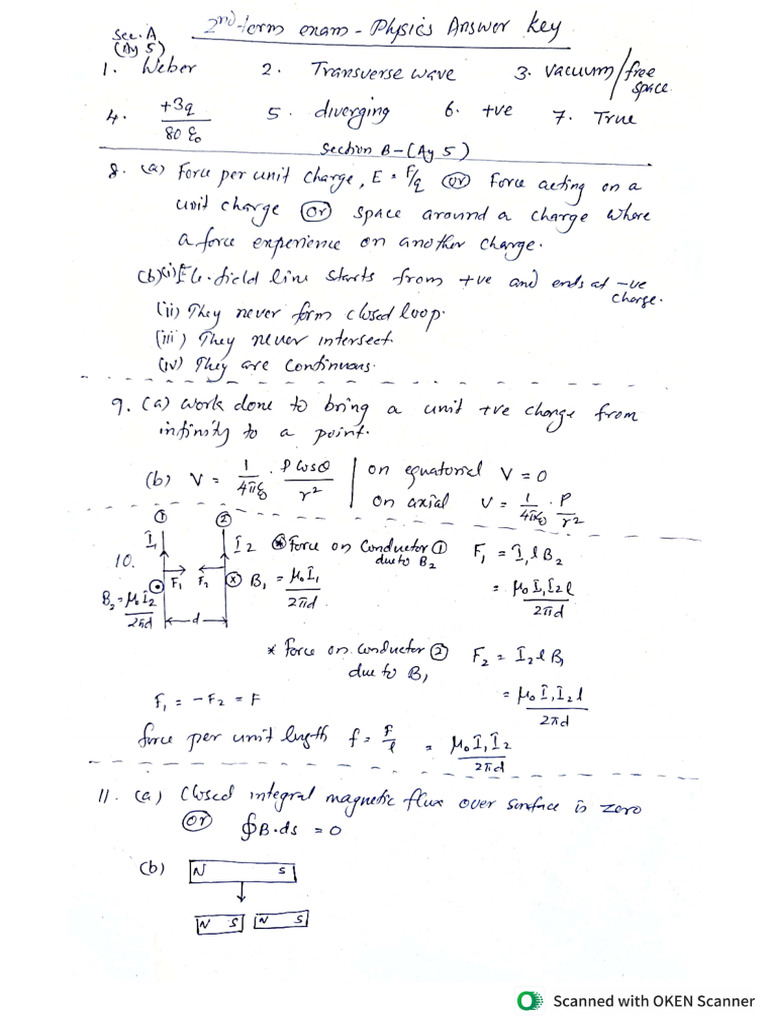 2nd term exam - Physics Answer Key
Sec. A
(Any 5)
1. Weber 2. Transverse wave 3. vacuum/free space
4. +3q/80 ε₀ 5. diverging 6. +ve 7. True
Section B - (Any 5)
8. (a) Force per unit charge, E = F/q (or) Force acting on a
unit charge (or) space around a charge where
a force experience on another charge.
(b) (i) Ele. field line starts from +ve and ends at -ve charge.
(ii) They never form closed loop.
(iii) They never intersect.
(iv) They are continuous.
9. (a) work done to bring a unit +ve charge from
infinity to a point.
(b) V = 1/4πε₀ · P cosθ/r² | on equatorial V = 0
on axial V = 1/4πε₀ · P/r²
10. ① ② I₁ I2 F₁ F₂ d
B₂ = μ₀I2/2πd
B₁ = μ₀I₁/2πd
* Force on Conductor ① due to B₂ F₁ = I₁ l B₂
= μ₀I₁I2l/2πd
* Force on Conductor ② due to B₁ F₂ = I₂ l B₁
= μ₀I₁I₂l/2πd
F₁ = -F₂ = F
force per unit length f = F/l = μ₀I₁I2/2πd
11. (a) Closed integral magnetic flux over surface is zero
(or) ∮B.ds = 0
(b) N S
N S N S
Scanned with OKEN Scanner